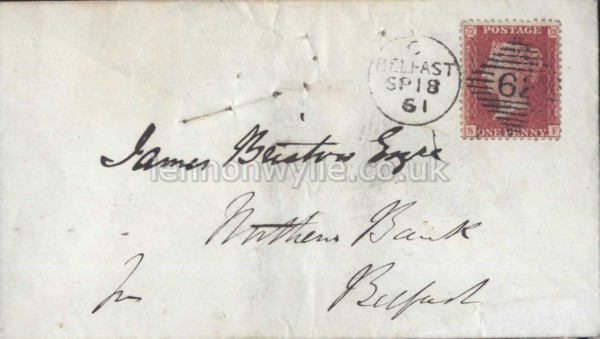 POSTAGE
C
BELFAST
SP 18
61
62
S ONE PENNY F
James Bristow Esqre
lennonwylie.co.uk
Northern Bank
Belfast